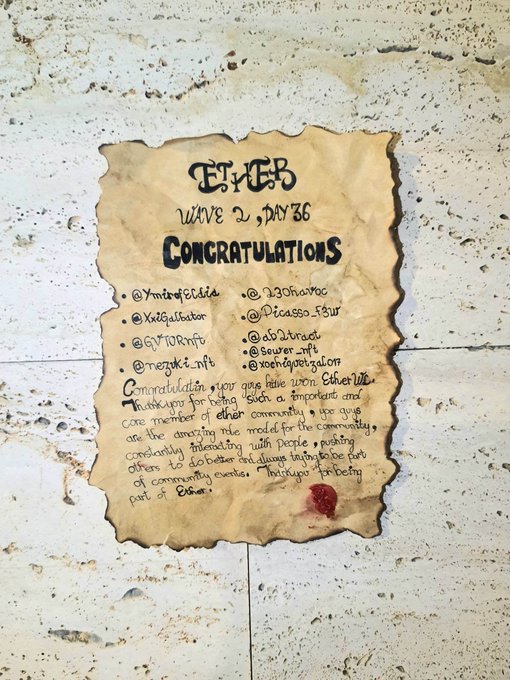 ETHER
WAVE 2, DAY 36
CONGRATULATIONS
• @YmirofECdia
• @XxiGalbator
• @GVTORnft
• @nezuki_nft
• @230havoc
• @Picasso_F3W
• @ab2tract
• @sewer_nft
• @xochiquetzal017
Congratulatin, your guys have won Ether WL.
Thankyou for being such a important and
core member of ether community, your guys
are the amazing role model for the community,
constantly interacting with people, pushing
others to do better and always trying to be part
of community events. Thankyou for being
part of Ether.